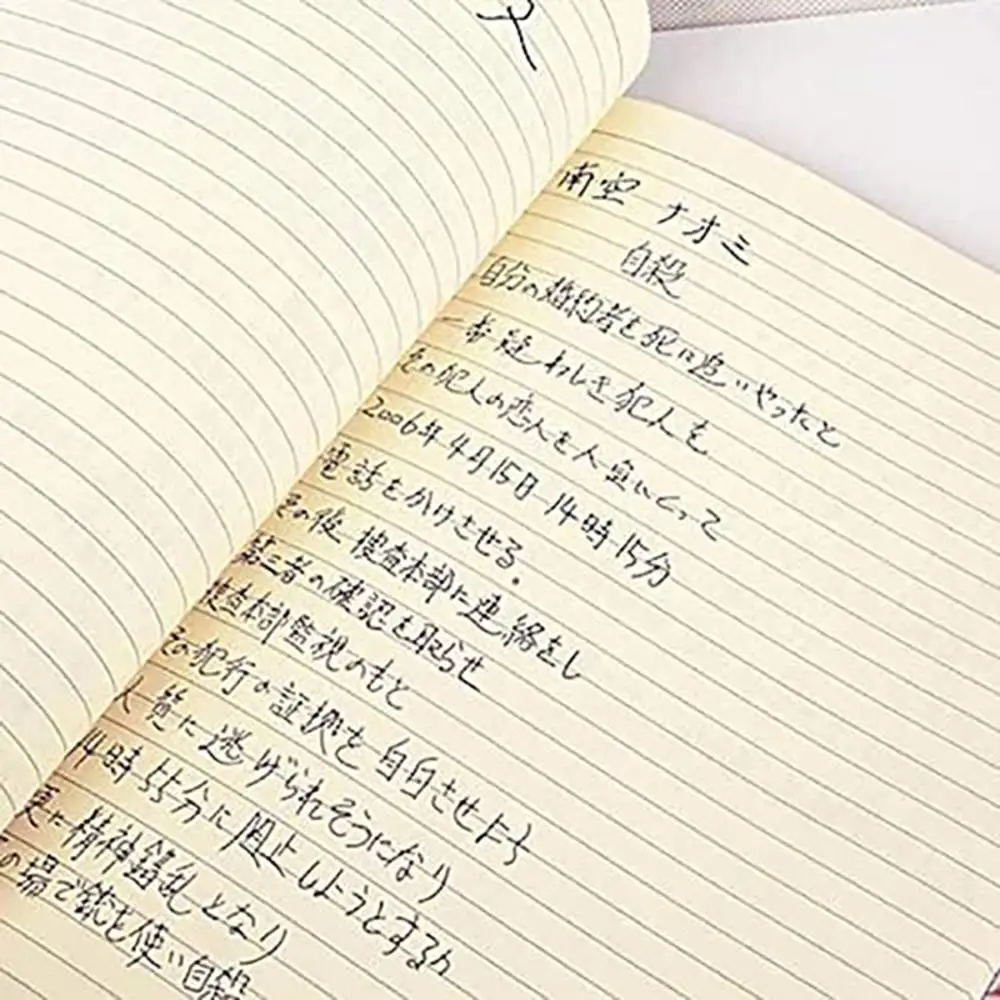 南空 ナオミ
自殺
自分の婚約者を死に追いやったと
一番疑わしき犯人を
その犯人の恋人を人質にとって
2006年4月15日 14時15分
電話をかけさせる。
その後 捜査本部に連絡をし
第三者の確認を取らせ
捜査本部監視のもと
その犯行の証拠を自白させよう
人質に逃げられそうになり
14時55分に阻止しようとするが
更に精神錯乱となり
その場で銃を使い自殺